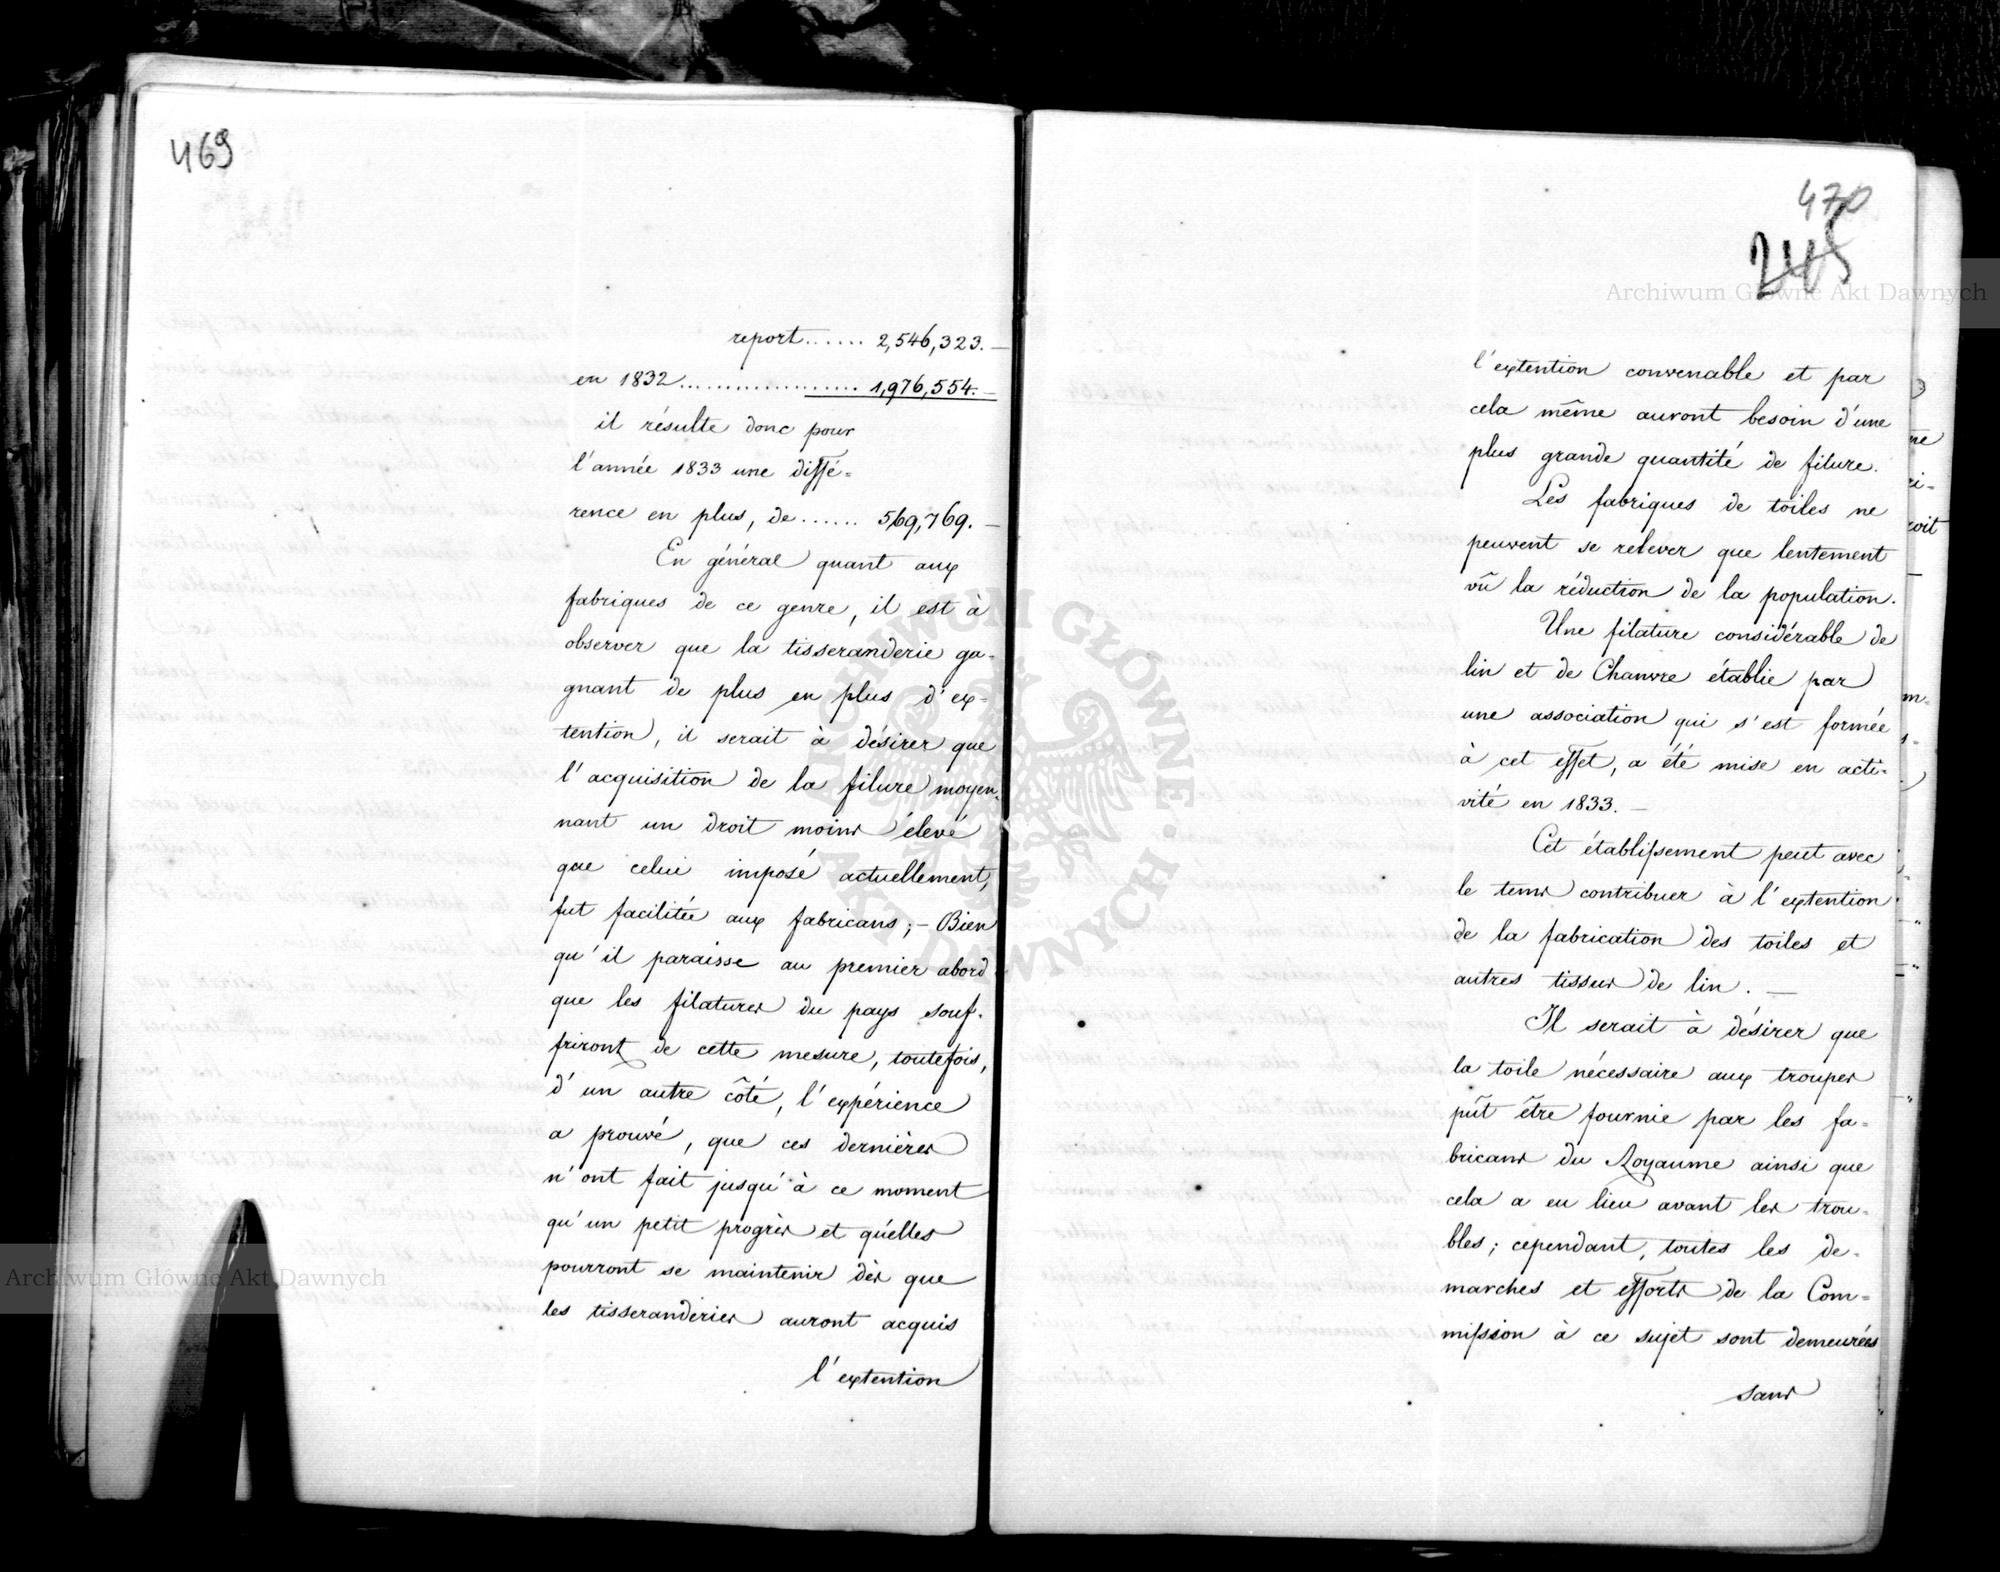 469
report...... 2,546,323.—
en 1832................... 1,976,554.—
il résulte donc pour
l'année 1833 une diffé-
rence en plus, de...... 569,769.—
En général quant aux
fabriques de ce genre, il est à
observer que la tisseranderie ga-
gnant de plus en plus d'ex-
tention, il serait à désirer que
l'acquisition de la filure moyen-
nant un droit moins élevé
que celui imposé actuellement,
fut facilitée aux fabricans;— Bien
qu'il paraisse au premier abord
que les filatures du pays souf-
friront de cette mesure, toutefois,
d'un autre côté, l'expérience
a prouvé, que ces dernières
n'ont fait jusqu'à ce moment
qu'un petit progrès et qu'elles
pourront se maintenir dès que
les tisseranderies auront acquis
l'extention
470
245
l'extention convenable et par
cela même auront besoin d'une
plus grande quantité de filure.
Les fabriques de toiles ne
peuvent se relever que lentement
vû la réduction de la population.
Une filature considérable de
lin et de Chanvre établie par
une association qui s'est formée
à cet effet, a été mise en acti-
vité en 1833.—
Cet établissement peut avec
le tems contribuer à l'extention
de la fabrication des toiles et
autres tissus de lin.—
Il serait à désirer que
la toile nécessaire aux troupes
pût être fournie par les fa-
bricans du Royaume ainsi que
cela a eu lieu avant les trou-
bles; cependant, toutes les de-
marches et efforts de la Com-
mission à ce sujet sont demeurées
sans
Archiwum Główne Akt Dawnych
Archiwum Główne Akt Dawnych
ARCHIWUM GŁÓWNE AKT DAWNYCH